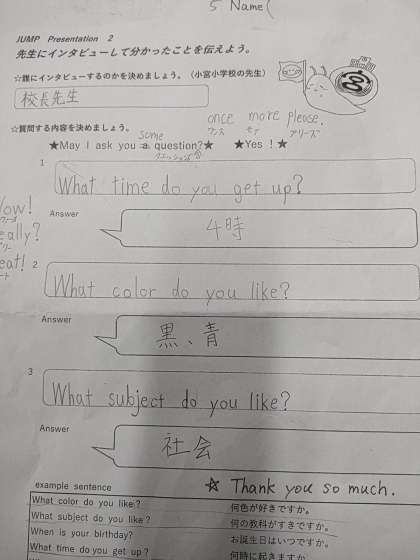 5 Name (
JUMP Presentation 2
先生にインタビューして分かったことを伝えよう。
☆誰にインタビューするのかを決めましょう。（小宮小学校の先生）
校長先生
once more please.
ワンス モア プリーズ
☆質問する内容を決めましょう。
some
★May I ask you a question?★ ★Yes！★
クエッションズ
1
What time do you get up?
Answer
4時
Wow!
Really?
2
What color do you like?
Answer
黒、青
3
What subject do you like?
Answer
社会
example sentence
☆ Thank you so much.
What color do you like? 何色が好きですか。
What subject do you like? 何の教科がすきですか。
When is your birthday? お誕生日はいつですか。
What time do you get up? 何時に起きますか